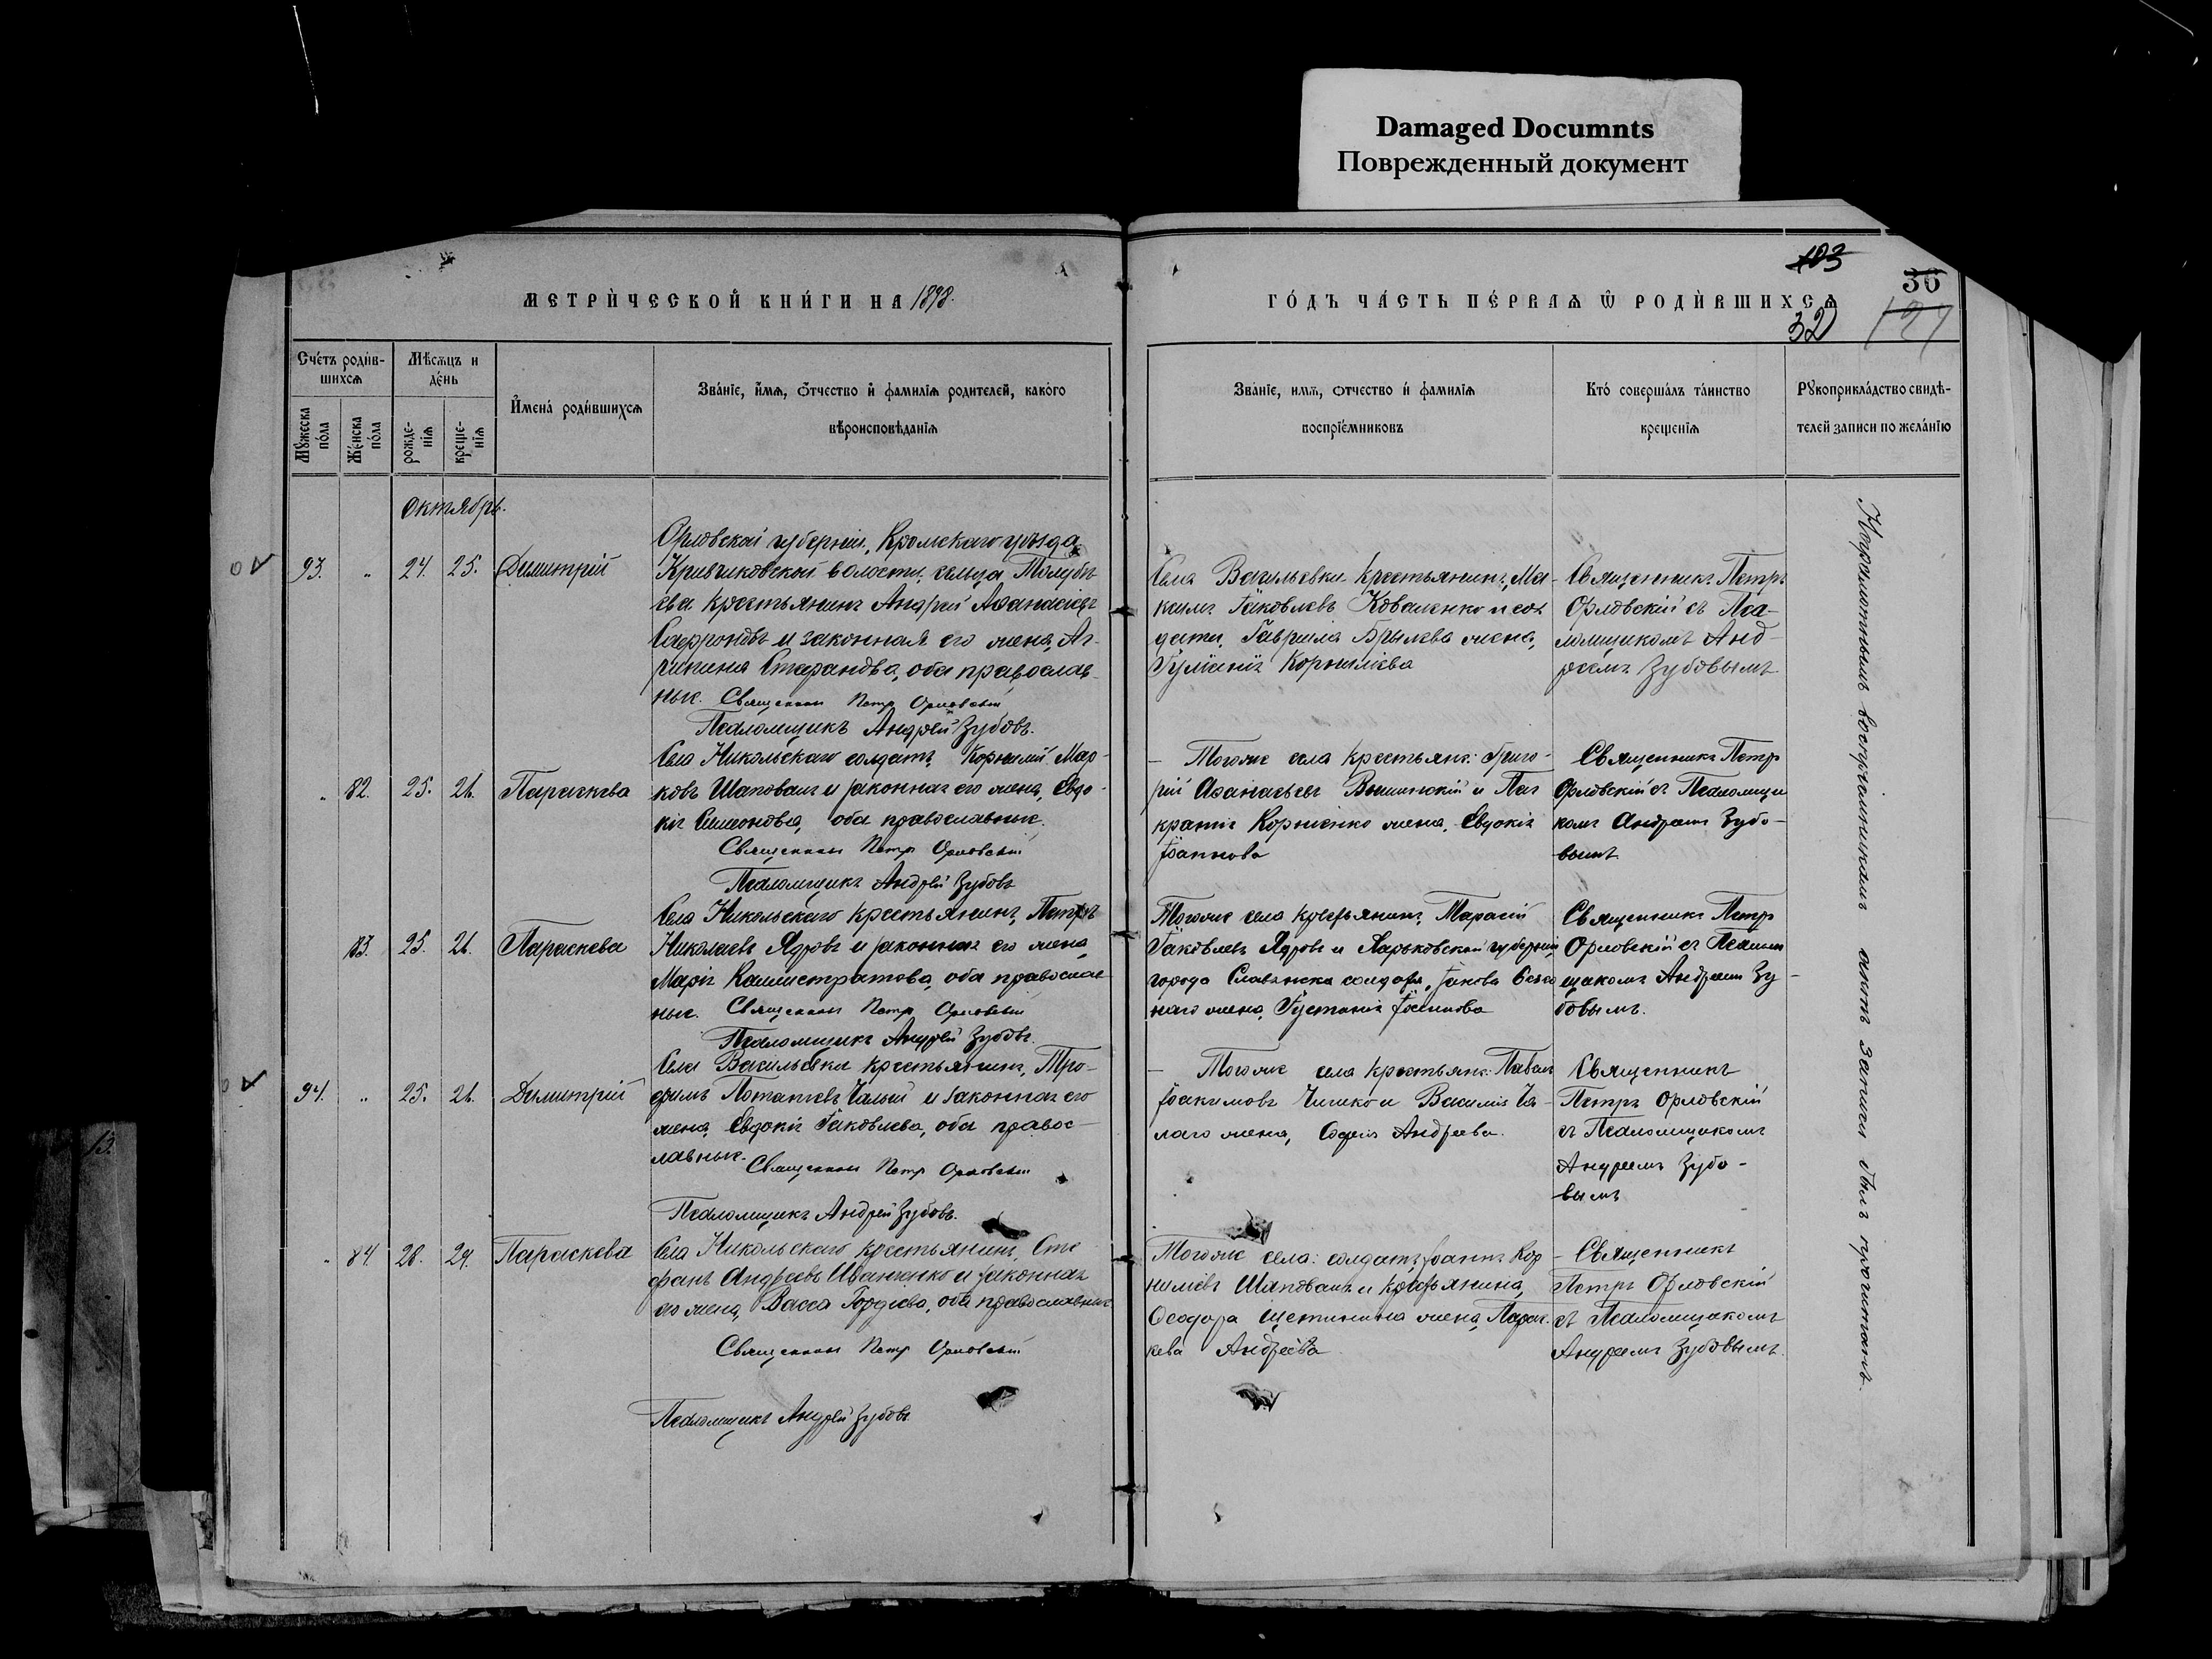 Damaged Documnts
Поврежденный документ
103
36
32
МЕТРИ́ЧЕСКОЙ КНИ́ГИ НА 1898.
ГО́ДЪ ЧА́СТЬ ПЕ́РВАѦ Ѿ РОДИ́ВШИХСѦ
Сче́тъ роди́в-
шихсѧ
Мꙋ́жеска
по́ла
Же́нска
по́ла
Мѣ́сѧцъ и
де́нь
рожде-
нїѧ
креще-
нїѧ
И҆мена́ роди́вшихсѧ
Зва́нїе, и҆́мѧ, ѻ҆́тчество и҆ фамилїѧ родителей, како́го
вѣроисповѣданїѧ
Зва́нїе, имѧ, ѻтчество и҆ фамилїѧ
воспрїе́мниковъ
Кто́ совершалъ та́инство
креще́нїѧ
Рꙋкоприкла́дство свидѣ-
телей записи по жела́нїю
Октябрь.
93. " 24. 25. Димитрій
Орловской губерніи, Кромскаго уѣзда
Кривчиковской волости, сельца Голубѣ-
ева крестьянинъ Андрей Аѳанасіевъ
Сафроновъ и законная его жена, Аг-
рипина Стефанова, оба православ-
ные. Священникъ Петръ Орловскій
Псаломщикъ Андрей Зубовъ.
Села Васильевки крестьянинъ, Мак-
симъ Іаковлевъ Коваленко и сол-
дата, Гавріила Брылева жена,
Іуліанія Корниліева
Священникъ Петръ
Орловскій съ Пса-
ломщикомъ Анд-
реемъ Зубовымъ.
" 82. 25. 26. Параскева
Села Никольскаго солдатъ, Корнилій Мар-
ковъ Шаповалъ и законная его жена, Евдо-
кія Симеонова, оба православные.
Священникъ Петръ Орловскій
Псаломщикъ Андрей Зубовъ
Тогоже села крестьян: Григо-
рій Аѳанасьевъ Вишинскій и Пан
кратія Корніенко жена, Евдокія
Іоаннова
Священникъ Петръ
Орловскій съ Псаломщи
комъ Андреемъ Зубо-
вымъ
83. 25. 26. Параскева
Села Никольскаго крестьянинъ, Петръ
Николаевъ Ядровъ и законная его жена,
Марія Каллистратова, оба православ
ные. Священникъ Петръ Орловскій
Псаломщикъ Андрей Зубовъ.
Тогоже села крестьянинъ, Тарасій
Іаковлевъ Ядровъ и Харьковской губерніи,
города Славянска солдата, Іакова
наго жена, Іустинія
Священникъ Петръ
Орловскій съ Псалом
щикомъ Андреемъ Зу-
бовымъ.
94. " 25. 26. Димитрій
Села Васильевки крестьянинъ, Тро-
фимъ Потапіевъ Чалый и законная его
жена, Евдокія Іаковлева, оба правос-
лавные. Священникъ Петръ Орловскій
Псаломщикъ Андрей Зубовъ.
Тогоже села крестьян: Павелъ
Іоакимовъ и Василія Ча-
лаго жена, Софія Андреева.
Священникъ
Петръ Орловскій
съ Псаломщикомъ
Андреемъ Зубо-
вымъ
" 84. 28. 29. Параскева
Села Никольскаго крестьянинъ, Сте
фанъ Андреевъ Иваненко и законная
его жена, Васса Гордіева, оба православные
Священникъ Петръ Орловскій
Псаломщикъ Андрей Зубовъ
Тогоже села: солдатъ, Іоаннъ Кор
ниліевъ Шаповалъ и крестьянина,
Ѳеодора Щетинина жена, Парас
кева Андреева
Священникъ
Петръ Орловскій
съ Псаломщикомъ
Андреемъ Зубовымъ.
Неграмотнымъ воспріемникамъ актъ записи былъ прочитанъ.
13.